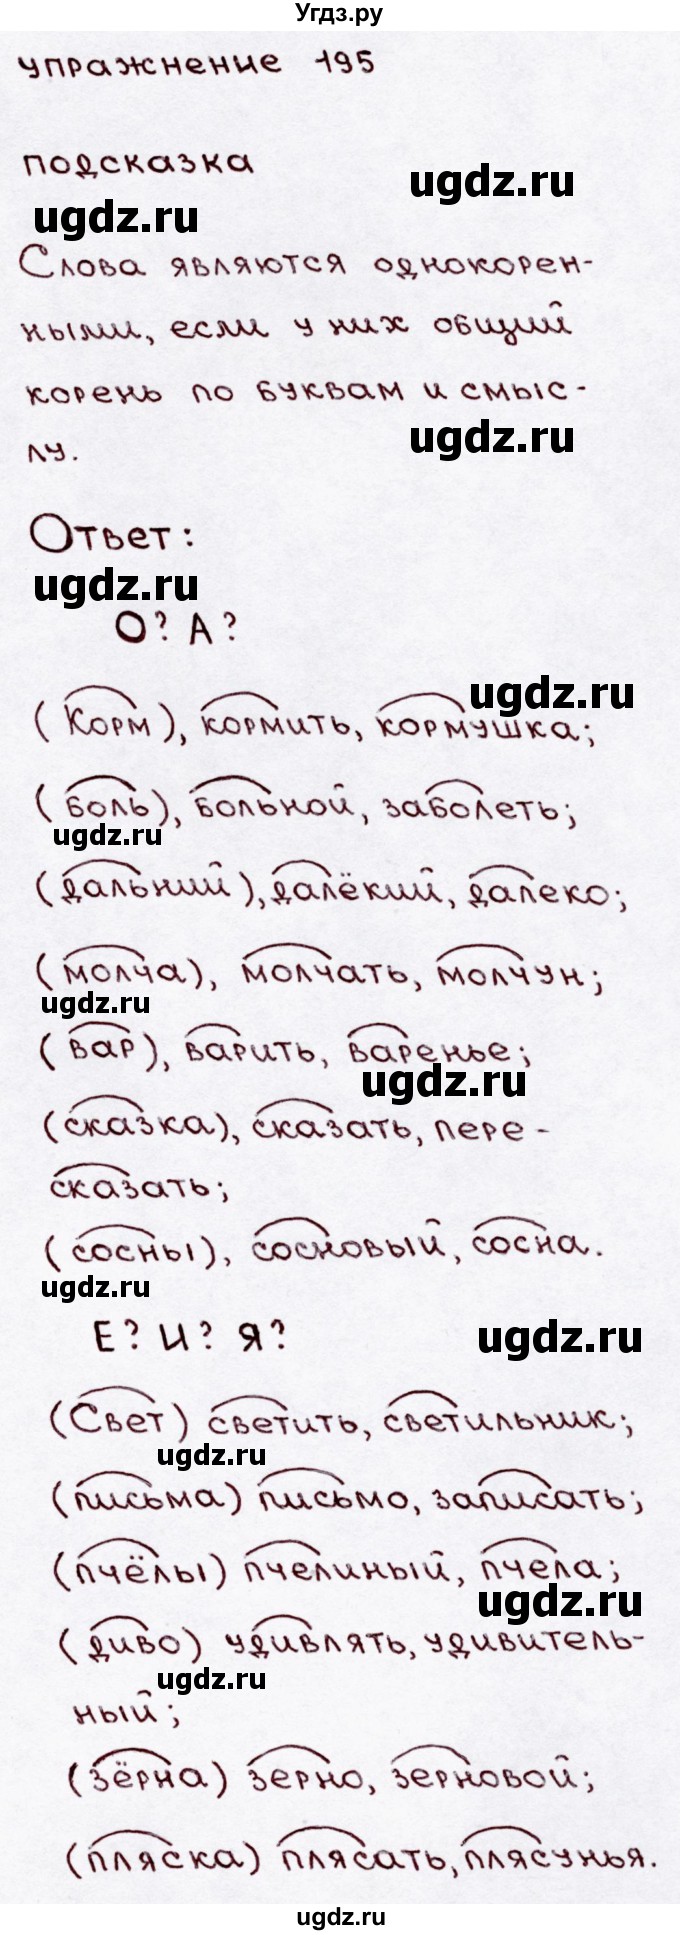 Угдз.ру
упражнение 195
подсказка
ugdz.ru
ugdz.ru
Слова являются однокорен-
ными, если у них общий
корень по буквам и смыс-
ugdz.ru
лу.
Ответ:
ugdz.ru
О? А?
ugdz.ru
(Корм), кормить, кормушка;
(боль), больной, заболеть;
ugdz.ru
(дальний), далёкий, далеко;
(молча), молчать, молчун;
ugdz.ru
(вар), варить, варенье;
ugdz.ru
(сказка), сказать, пере-
сказать;
(сосны), сосновый, сосна.
ugdz.ru
Е? И? Я?
ugdz.ru
(Свет) светить, светильник;
ugdz.ru
(письма) письмо, записать;
(пчёлы) пчелиный, пчела;
ugdz.ru
(диво) удивлять, удивитель-
ugdz.ru
ный;
(зёрна) зерно, зерновой;
(пляска) плясать, плясунья.
ugdz.ru